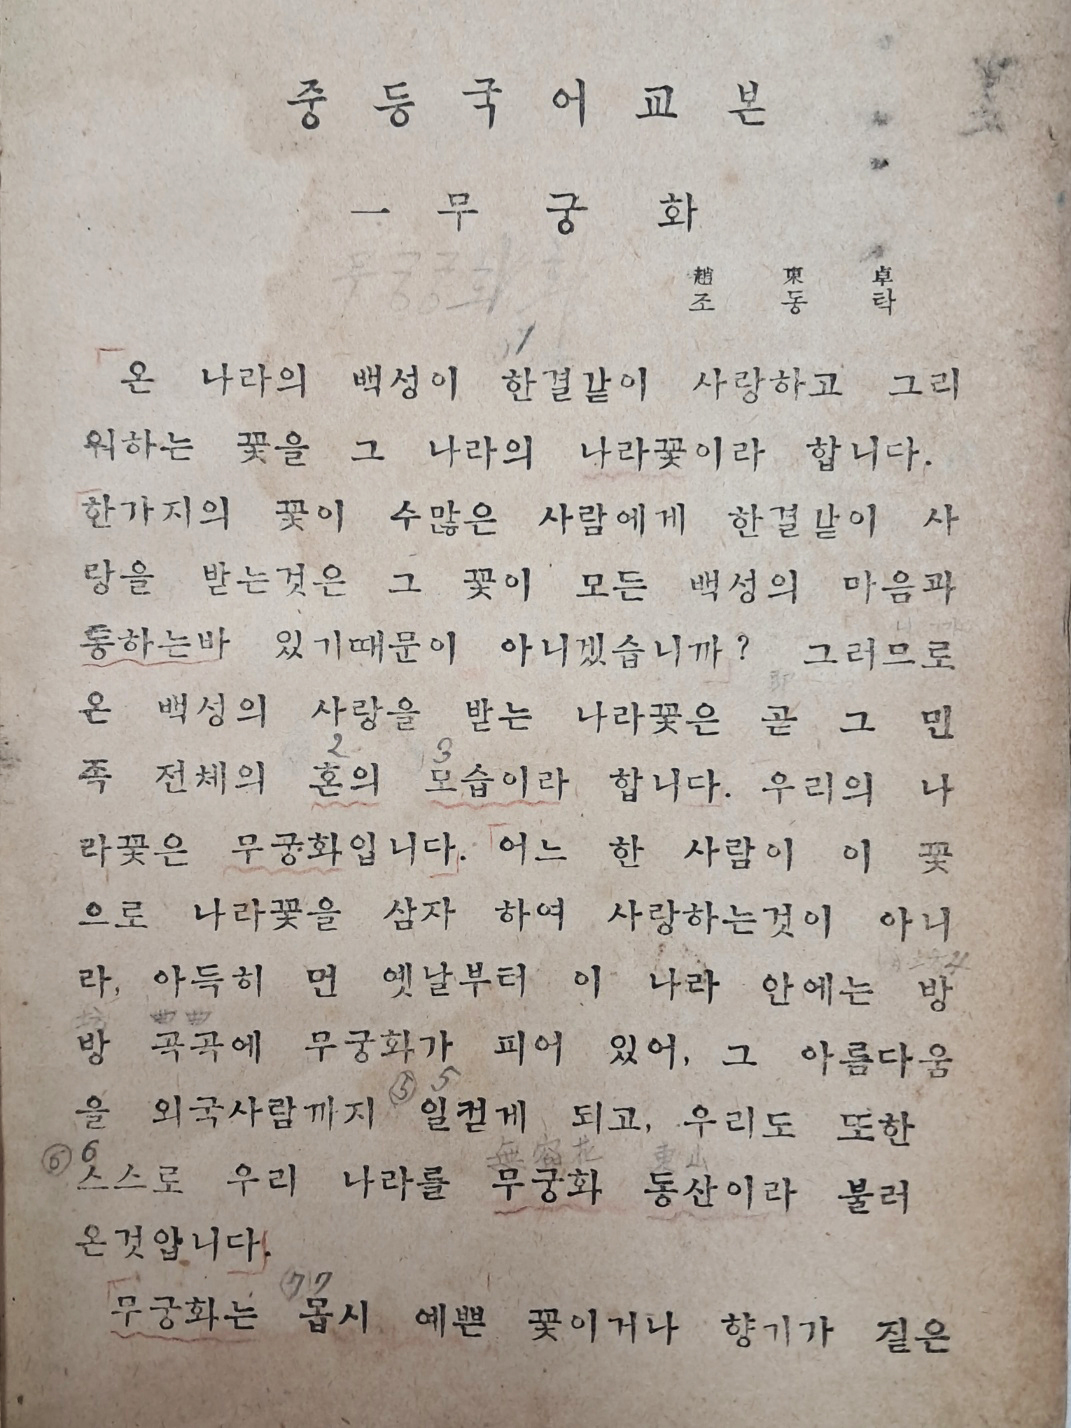 중등국어교본
一 무궁화
趙東卓
조동탁
온 나라의 백성이 한결같이 사랑하고 그리
워하는 꽃을 그 나라의 나라꽃이라 합니다.
한가지의 꽃이 수많은 사람에게 한결같이 사
랑을 받는것은 그 꽃이 모든 백성의 마음과
통하는바 있기때문이 아니겠습니까? 그러므로
온 백성의 사랑을 받는 나라꽃은 곧 그 민
2 3
족 전체의 혼의 모습이라 합니다. 우리의 나
라꽃은 무궁화입니다. 어느 한 사람이 이 꽃
으로 나라꽃을 삼자 하여 사랑하는것이 아니
라, 아득히 먼 옛날부터 이 나라 안에는 방
曲曲
방 곡곡에 무궁화가 피어 있어, 그 아름다움
⑤ 5
을 외국사람까지 일컫게 되고, 우리도 또한
⑥ 6 無窮花 東山
스스로 우리 나라를 무궁화 동산이라 불러
온것입니다.
⑦ 7
무궁화는 몹시 예쁜 꽃이거나 향기가 짙은